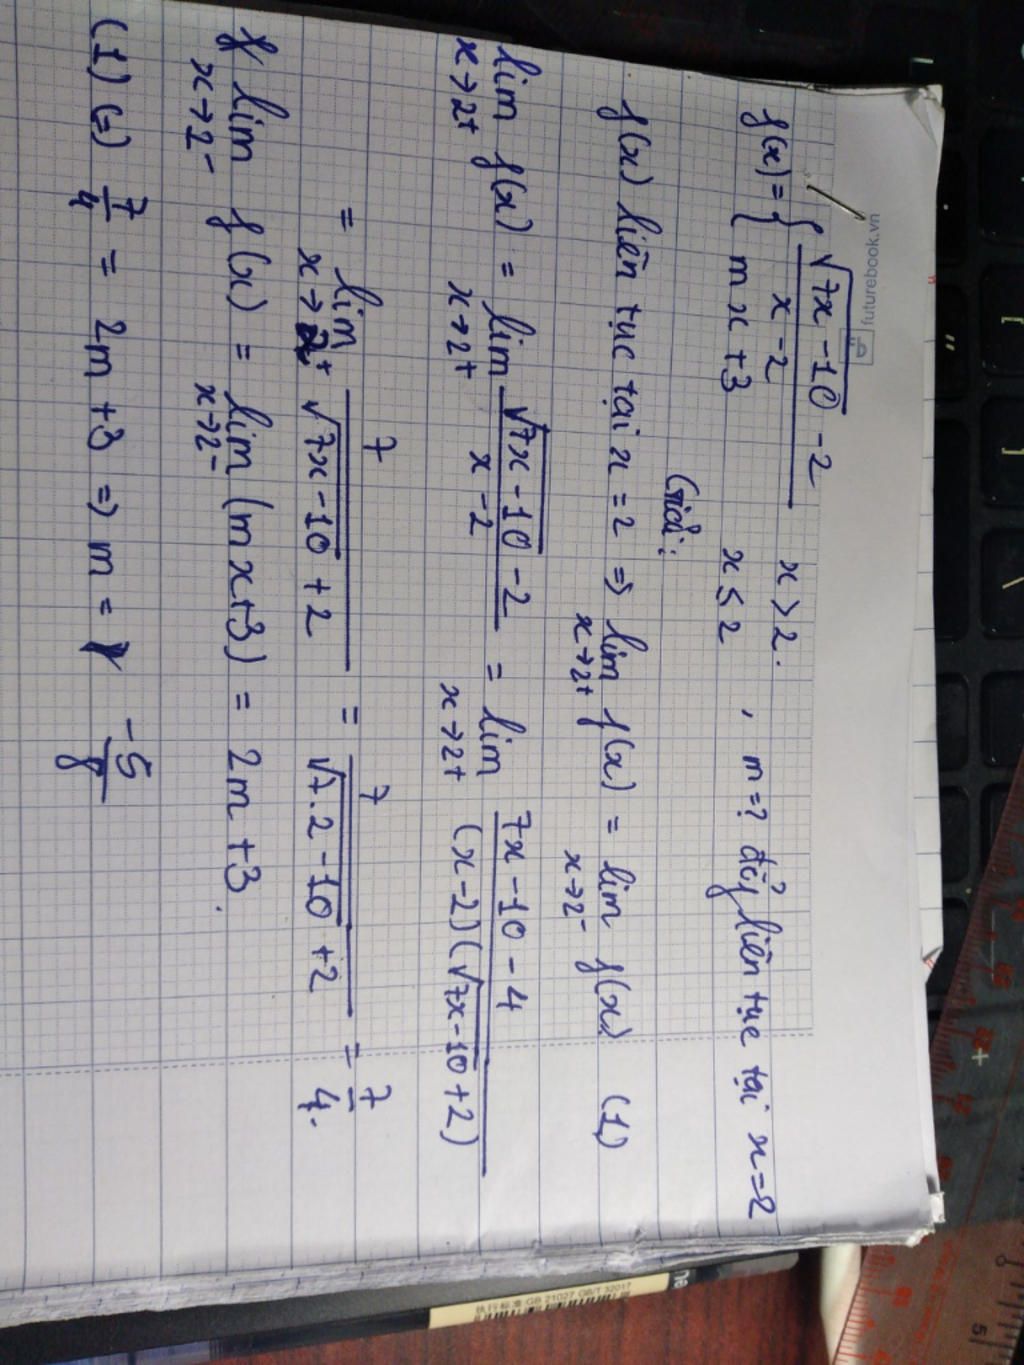 futurebook.vn
f(x) = { (√(7x-10) - 2)/(x-2) x > 2.
m x + 3 x ≤ 2 , m = ? để f liên tục tại x = 2
Giải:
f(x) liên tục tại x = 2 => lim x→2+ f(x) = lim x→2- f(x) (1)
lim x→2+ f(x) = lim x→2+ (√(7x-10) - 2)/(x-2) = lim x→2+ (7x-10-4)/((x-2)(√(7x-10)+2))
= lim x→2+ 7/(√(7x-10)+2) = 7/(√(7.2-10)+2) = 7/4.
lim x→2- f(x) = lim x→2- (mx+3) = 2m+3.
(1) (=) 7/4 = 2m+3 => m = -5/8
执行标准:GB 21027 GB/T 32017